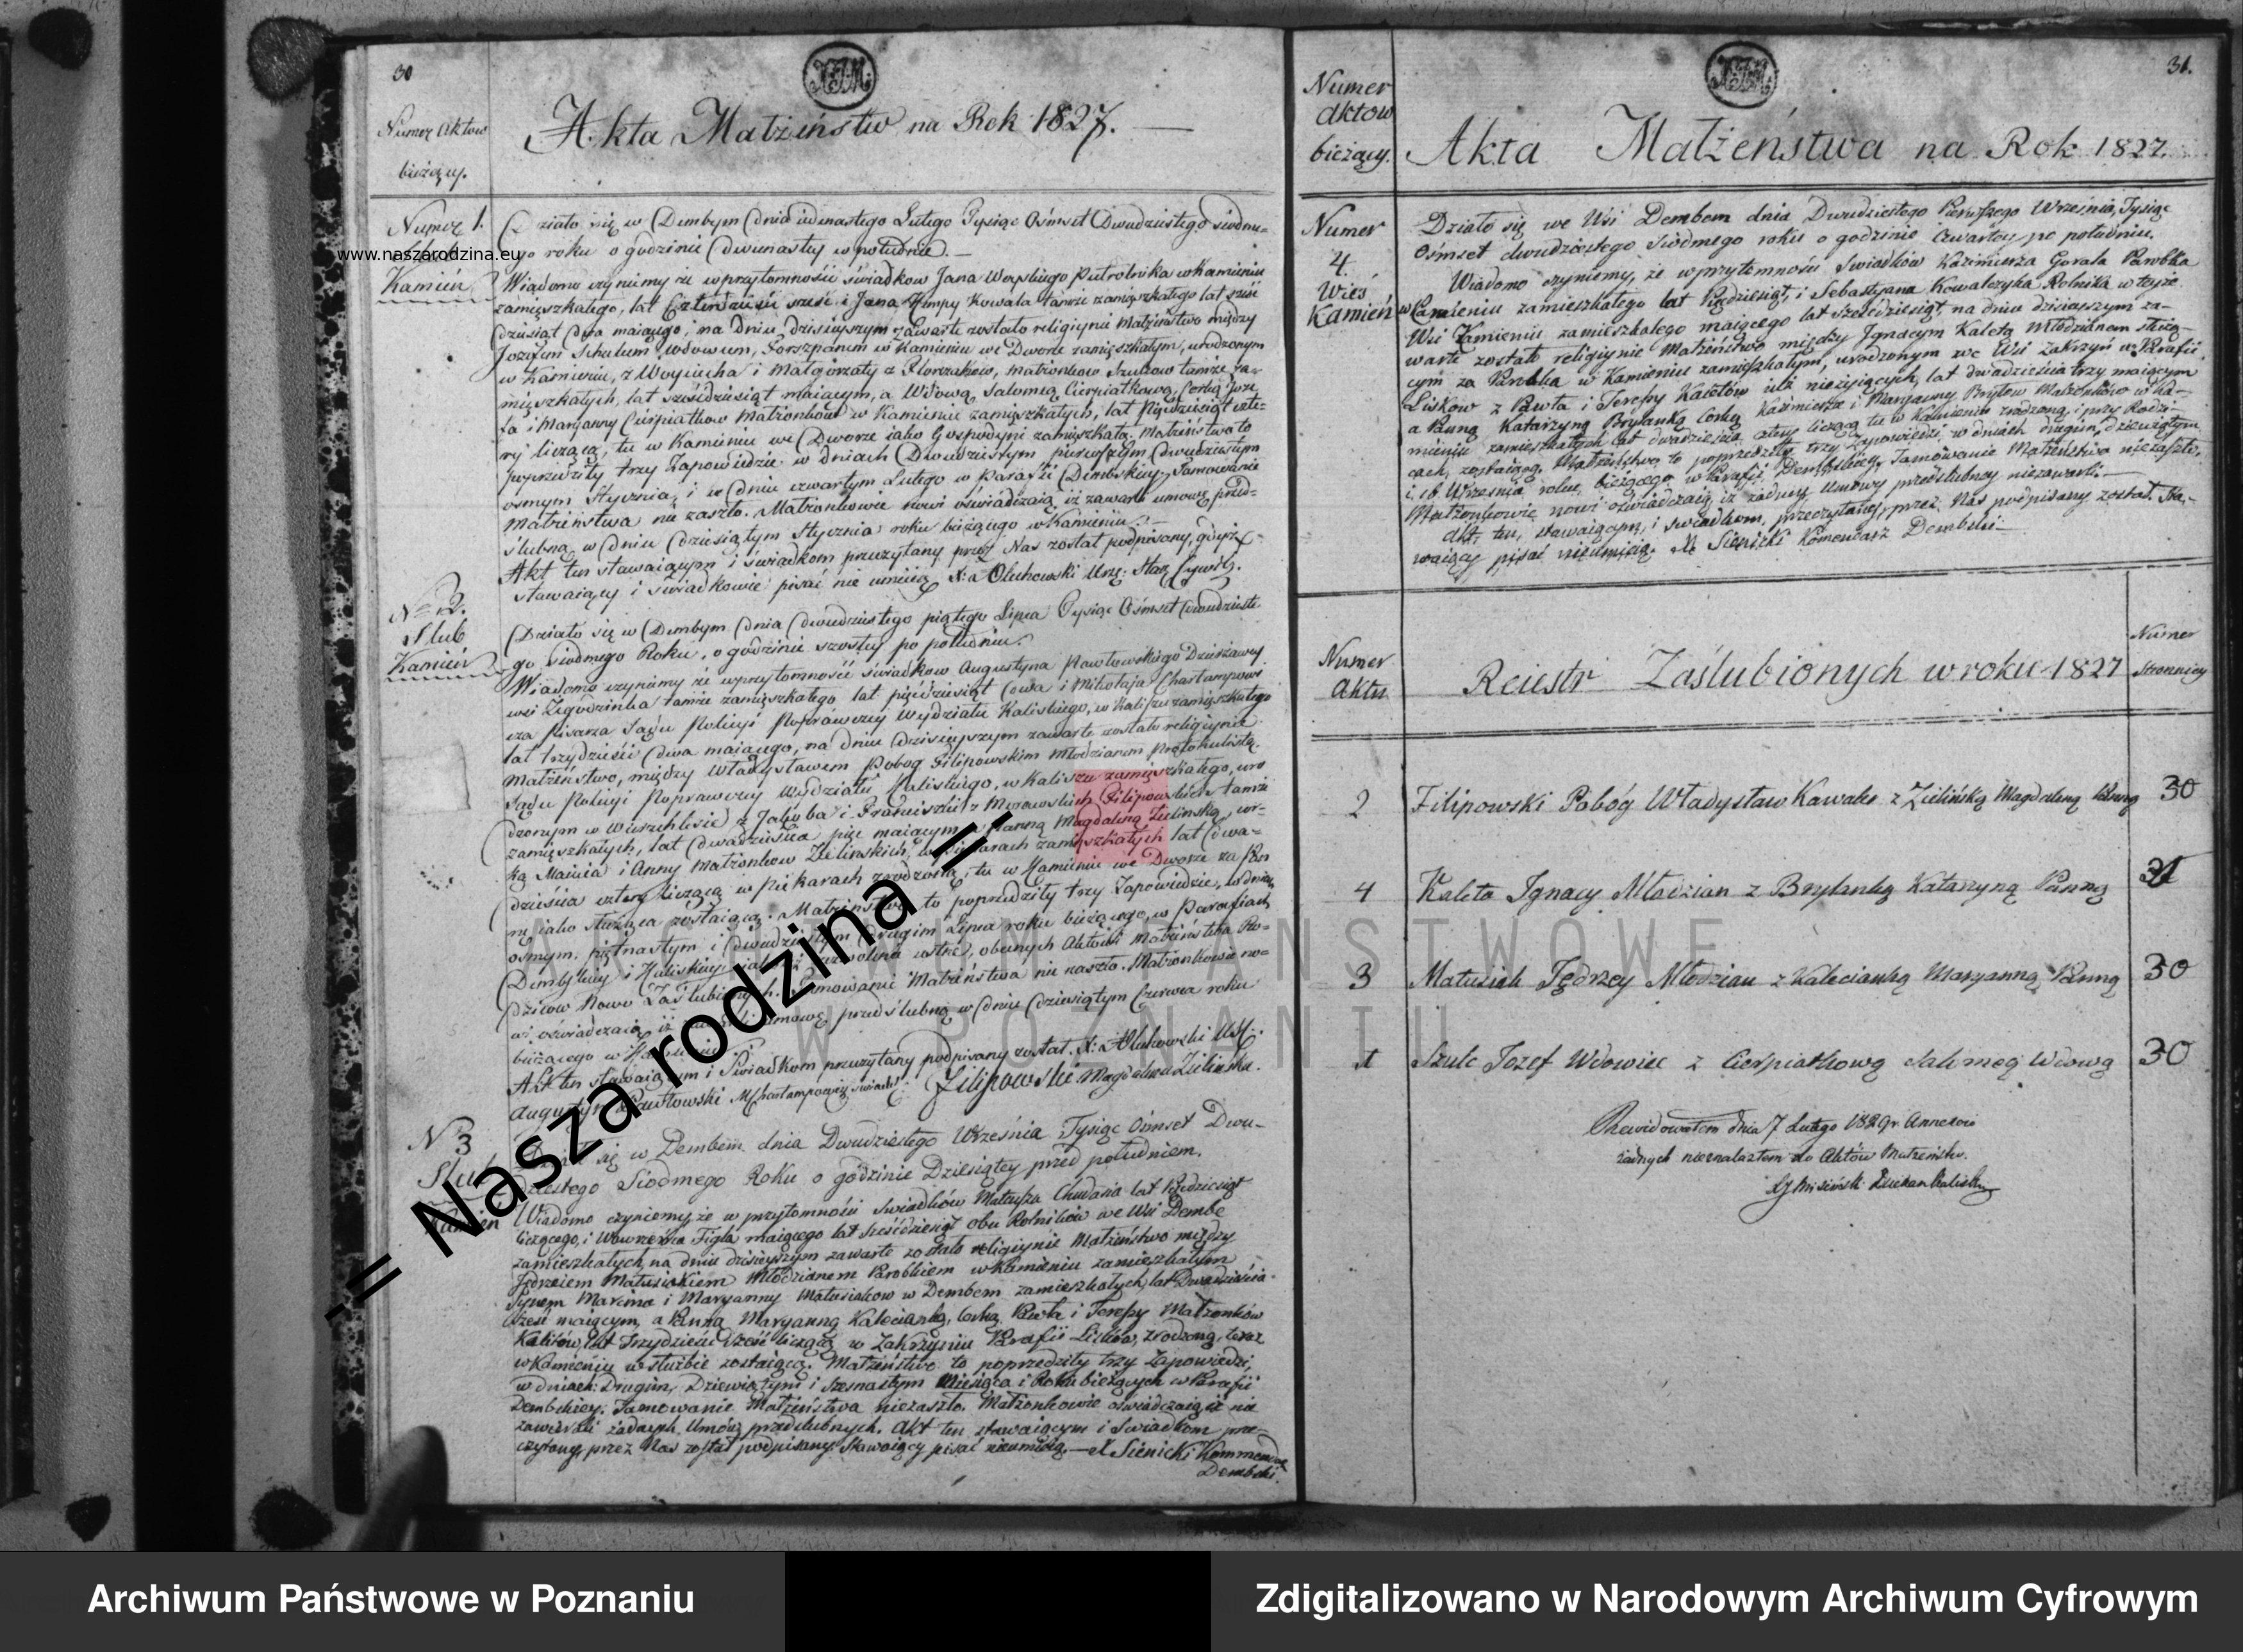 30
Akta Małżeństw na Rok 1827.
Numer aktow
bieżący.
Numer 1.
Ślub
www.naszarodzina.eu
Kamień
Działo się w Dembym dnia iedenastego Lutego Tysiąc Ośmset Dwudziestego siodme-
go roku o godzinie dwunastey w południe. —
Wiadomo czynimy że w przytomności świadkow Jana Woyskiego Półrolnika w Kamieniu
zamięszkałego, lat Czterdzieści sześć i Jana Kempy Kowala tamże zamięszkałego lat sześć
dziesiąt dwa maiącego, na dniu dzisieyszym zawarte zostało religiyne Małżeństwo między
Jozefem Schulcem Wdowcem, Gorszpanem w Kamieniu we Dworze zamięszkałym, urodzonym
w Kamieniu, z Woyciecha i Małgorzaty z Florczakow, małżonkow Szulcow tamże za-
mięszkałych, lat sześćdziesiąt maiącym, a Wdową Salomeą Cierpiatkową Corką Joze-
fa i Maryanny Cierpiatkow Małżonkow w Kamieniu zamięszkałych, lat Pięćdziesiąt czte-
ry liczącą, tu w Kamieniu we Dworze iako Gospodyni zamięszkałą. Małżeństwo to
poprzedziły trzy Zapowiedzie w dniach Dwudziestym pierwszym Dwudziestym
osmym Stycznia, i w dniu czwartym Lutego w Parafii Dembskiey. Tamowanie
Małżeństwa nie zaszło. Małżonkowie nowi oświadczaią iż zawarli umowę przed-
ślubną w dniu dziesiątym Stycznia roku bieżącego w Kamieniu. —
Akt ten stawaiącym i świadkom przeczytany przez Nas został podpisany, gdyż
stawaiący i świadkowie pisać nie umieią X: Oluhowski Urz: Stan: Cywil:
No 2.
Ślub
Kamień
Działo się w Dembym dnia dwudziestego piątego Lipca Tysiąc Ośmset Dwudzieste-
go siodmego Roku, o godzinie szostey po południu.
Wiadomo czynimy że w przytomności świadkow Augustyna Pawłowskiego Dzierżawcy
wsi Zegodzinka tamże zamięszkałego lat pięćdziesiąt dwa i Mikołaja Charłampowi-
cza Pisarza Sądu Policyi Poprawczey Wydziału Kaliskiego, w Kaliszu zamięszkałego
lat trzydzieści dwa maiącego, na dniu dzisieyszym zawarte zostało religiynie
Małżeństwo, między Władysławem Pobog Filipowskim Młodzianem Protokulistą
Sądu Policyi Poprawczey Wydziału Kaliskiego, w Kaliszu zamięszkałego, uro
dzonym w z Jakuba i Franciszki z Morawskich Filipowskich tamże
zamięszkałych, lat dwadzieścia pięć maiącym a Panną Magdaleną Zielinską, cor-
ką Macieia i Anny Małżonkow Zielinskich, w Piekarach zamięszkałych lat dwa-
dzieścia cztery liczącą w Piekarach zrodzoną, tu w Kamieniu we Dworze za Pan
nę iako służąca zostaiącą. Małżeństwo to poprzedziły trzy Zapowiedzie, w dniu
osmym, piętnastym i dwudziestym drugim Lipca roku bieżącego, w Parafiach
Dembskiey i Kaliskiey, iako i zezwolenia ustne, obecnych Aktowi Małżeństwa Ro-
dzicow Nowo Zaślubionych. Tamowanie Małżeństwa nie zaszło. Małżonkowie no-
wi oświadczaią iż umowę przedślubną w dniu dziesiątym Czerwca roku
bieżącego w
Akt ten stawaiącym i Świadkom przeczytany podpisany został. X: Oluhowski USC:
Augustyn Pawłowski MCharłampowicz świadek: Filipowski Magdalena Zielinska.
N 3
Ślub
Kamień
się w Dembem dnia Dwudziestego Września Tysiąc Ośmset Dwu-
dziestego Siodmego Roku o godzinie Dziesiątey przed południem.
Wiadomo czyniemy, że w przytomności Swiadków Mateusza Chudasia lat Pięćdziesiąt
liczącego, i Wawrzeńca Figla maiącego lat Sześćdziesiąt obu Rolników we Wsi Dembe
zamieszkałych, na dniu dzisieyszym zawarte zostało religiynie Małżeństwo między
Jędrzeiem Matusiakiem Młodzianem Parobkiem w Kamieniu zamieszkałym
Synem Marcina i Maryanny Matusiakow w Dembem zamieszkałych, lat Dwadzieścia
sześć maiącym, a Panną Maryanną Kalecianką, Corką Pawła i Teressy Małżonków
Kaletów, lat Trzydzieści sześć liczącą w Zakrzyniu Parafii Lisków, zrodzoną, teraz
w Kamieniu w służbie zostaiącą. Małżeństwo to poprzedziły trzy Zapowiedzi,
w dniach: Drugim, Dziewiątym i szesnastym Miesiąca i Roku bieżących w Parafii
Dembskiey. Tamowanie Małżeństwa niezaszło. Małżonkowie oświadczaią iż nie
zawierali żadnych Umów przedslubnych. Akt ten stawaiącym i Świadkom prze-
czytany, przez Nas został podpisany. Stawaiący pisać nieumieią. — X Sienicki Kommendarz
Dembski.
31.
Numer
aktow
bieżący.
Akta Małżeństwa na Rok 1827.
Numer
4.
Wieś
Kamień
Działo się we Wsi Dembem dnia Dwudziestego Pierwszego Września, Tysiąc
Ośmset dwudziestego Siodmego roku o godzinie Czwartey po południu.
Wiadomo czyniemy, że w przytomności Swiadków Kaźmierza Gorala Parobka
w Kamieniu zamieszkałego lat Pięćdziesiąt, i Sebastyana Kowalczyka Rolnika w teyże
Wsi Kamieniu zamieszkałego maiącego lat sześćdziesiąt, na dniu dzisieyszym za-
warte zostało religiynie Małżeństwo między Jgnacym Kaletą Młodzianem służą-
cym za Parobka w Kamieniu zamieszkałym, urodzonym we Wsi Zakrzyn w Parafii
Lisków z Pawła i Teressy Kaletów iuż nieżyiących, lat dwadzieścia trzy maiącym
a Panną Katarzyną Brylanką Corką Kaźmierza i Maryanny Brylów Małżonków w Ka-
mieniu zamieszkałych lat dwadzieścia cztery liczącą tu w Kamieniu zrodzoną, i przy Rodzi-
cach zostaiącą. Małżeństwo to poprzedziły trzy Zapowiedzi w dniach drugim, dziewiątym
i 16 Września roku bieżącego w Parafii Dembskiey. Tamowanie Małżeństwa niezaszło.
Małżonkowie nowi oświadczaią iż żadney Umowy przedslubney niezawarli. —
Akt ten, stawaiącym, i swiadkom, przeczytany, przez Nas podpisany został. Sta-
waiący pisać nieumieią. X Sienicki Komendarz Dembski
Numer
aktu
Reiestr Zaślubionych w roku 1827
Numer
Stronnicy
2 Filipowski Pobóg Władysław Kawaler z Zielińską Magdaleną Panną 30
4 Kaleta Ignacy Młodzian z Brylanką Katarzyną Panną 31
3 Matusiak Jędrzey Młodzian z Kalecianką Maryanną Panną 30
1 Szulc Jozef Wdowiec z Cierpiatkową Salomeą Wdową 30
Rewidowałem dnia 7 Lutego 1829r Annexów
żadnych nieznalazłem do Aktów Małżeństw.
ARCHIWUM PAŃSTWOWE
W POZNANIU
-= Nasza rodzina =-
Archiwum Państwowe w Poznaniu
Zdigitalizowano w Narodowym Archiwum Cyfrowym